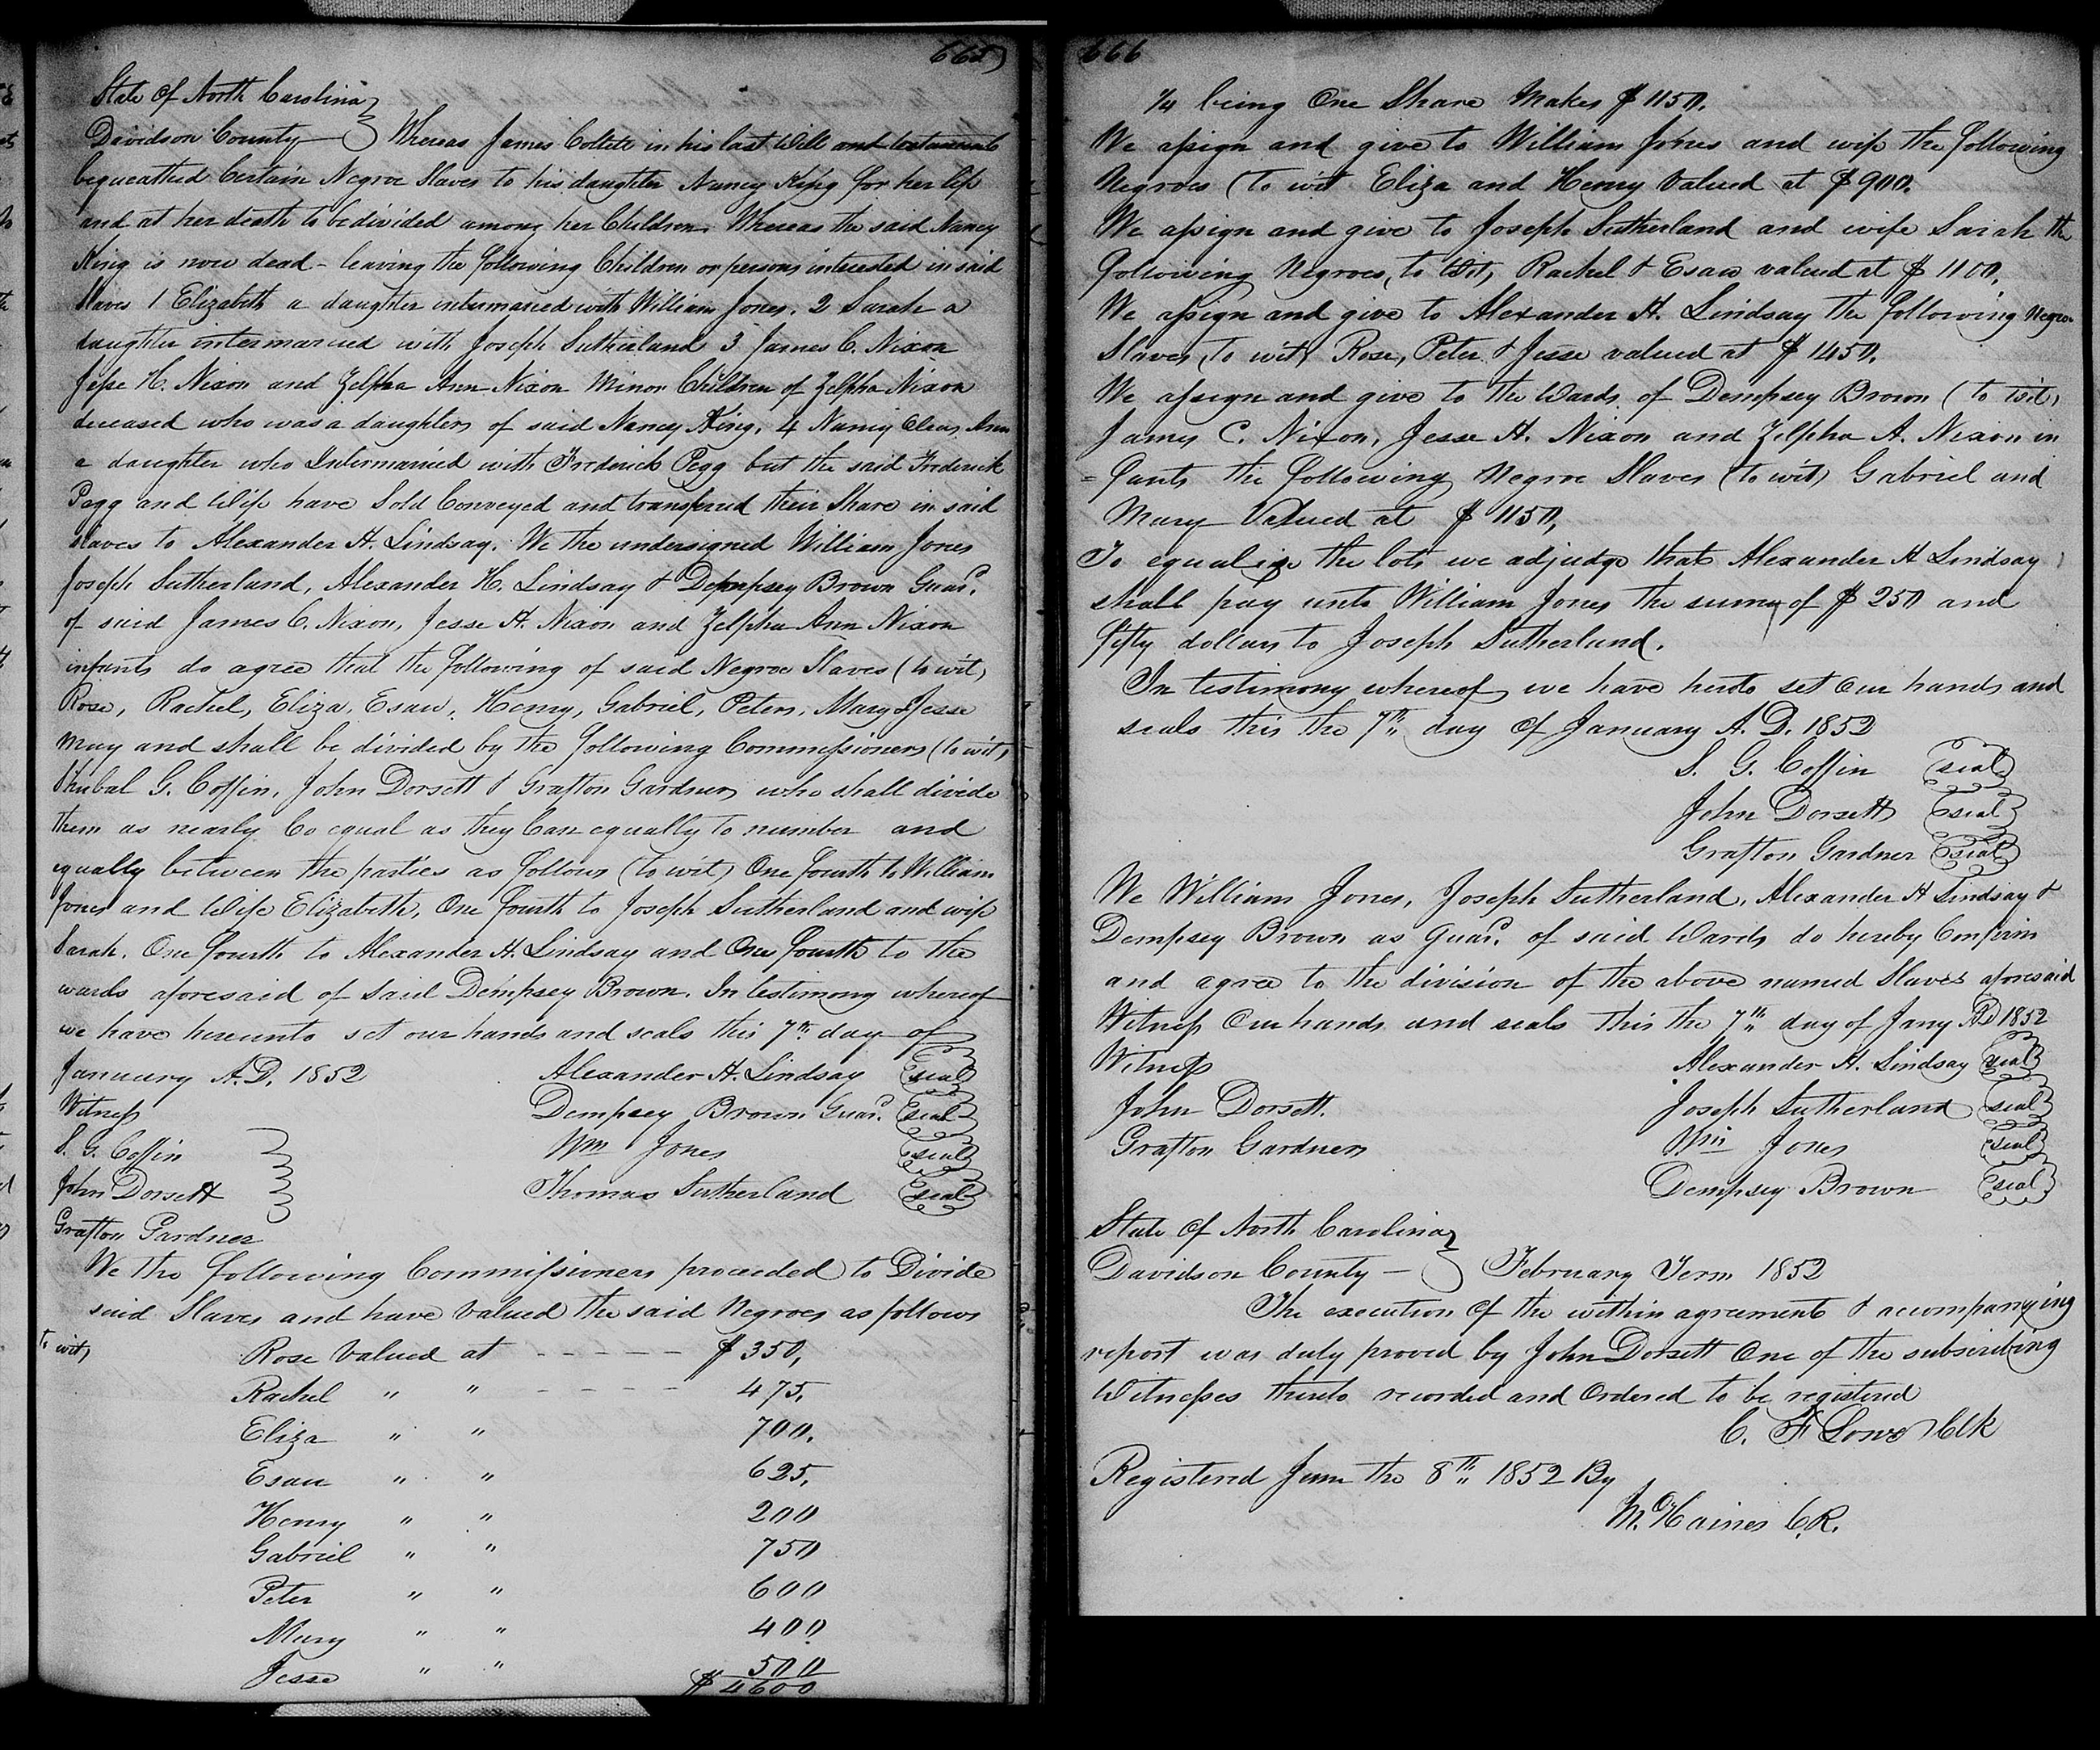 665
State of North Carolina
Davidson County Whereas James Collett in his last Will and testament
bequeathed Certain Negroe Slaves to his daughter Nancy King for her life
and at her death to be divided among her Children. Whereas the said Nancy
King is now dead - leaving the following Children or persons interested in said
Slaves 1 Elizabeth a daughter intermarried with William Jones. 2 Sarah a
daughter intermarried with Joseph Sutherland 3 James C. Nixon
Jesse H. Nixon and Zelpha Ann Nixon Minor Children of Zelpha Nixon
deceased who was a daughter of said Nancy King. 4 Nancy Ann
a daughter who Intermarried with Frederick Pegg but the said Frederick
Pegg and Wife have Sold Conveyed and transfered their Share in said
slaves to Alexander H. Lindsay. We the undersigned William Jones
Joseph Sutherland, Alexander H. Lindsay & Dempsey Brown Guard.
of said James C. Nixon, Jesse H. Nixon and Zelpha Ann Nixon
infants do agree that the following of said Negroe Slaves (to wit)
Rose, Rachel, Eliza, Esau, Henry, Gabriel, Peter, Mary & Jesse
may and shall be divided by the following Commissioners (to wit)
Shubal G. Coffin, John Dorsett & Grafton Gardner who shall divide
them as nearly Co equal as they Can equally to number and
equally between the parties as follows (to wit) One fourth to William
Jones and Wife Elizabeth, One fourth to Joseph Sutherland and wife
Sarah. One fourth to Alexander H. Lindsay and One fourth to the
wards aforesaid of said Dempsey Brown. In testimony whereof
we have hereunto set our hands and seals this 7th day of
January A.D. 1852 Alexander H. Lindsay seal
Witness Dempsey Brown Guard. seal
S. G. Coffin Wm Jones seal
John Dorsett Thomas Sutherland seal
Grafton Gardner
We the following Commissioners proceeded to Divide
said Slaves and have valued the said Negroes as follows
to wit)
Rose Valued at - - - - - $ 350,
Rachel " " - - - - 475.
Eliza " " 700.
Esau " " 625.
Henry " " 200
Gabriel " " 750
Peter " " 600
Mary " " 400
Jesse " " 500
$ 4600
666
1/4 being One Share Makes $ 1150.
We assign and give to William Jones and wife the following
Negroes (to wit Eliza and Henry Valued at $ 900.
We assign and give to Joseph Sutherland and wife Sarah the
following Negroes, to Wit, Rachel & Esau valued at $ 1100,
We assign and give to Alexander H. Lindsay the following Negroe
Slaves, to wit, Rose, Peter & Jesse valued at $ 1450,
We assign and give to the Wards of Dempsey Brown (to wit)
James C. Nixon, Jesse H. Nixon and Zelpha A. Nixon in
=fants the following Negroe Slaves (to wit) Gabriel and
Mary Valued at $ 1150,
To equalize the lots we adjudge that Alexander H Lindsay
shall pay unto William Jones the sum of $ 250 and
fifty dollars to Joseph Sutherland.
In testimony whereof we have herto set our hands and
seals this the 7th day of January A.D. 1852
S. G. Coffin seal
John Dorsett seal
Grafton Gardner seal
We William Jones, Joseph Sutherland, Alexander H Lindsay &
Dempsey Brown as Guard. of said Wards do hereby Confirm
and agree to the division of the above named Slaves aforesaid
Witness Our hands and seals this the 7th day of Jany AD 1852
Witness Alexander H. Lindsay seal
John Dorsett. Joseph Sutherland seal
Grafton Gardner Wm Jones seal
Dempsey Brown seal
State of North Carolina
Davidson County - February Term 1852
The execution of the within agreement & accompanying
report was duly proved by John Dorsett One of the subscribing
Witnesses thereto recorded and Ordered to be registered
C. F Lowe Clk
Registered June the 8th 1852 By
M. Haines C.R.